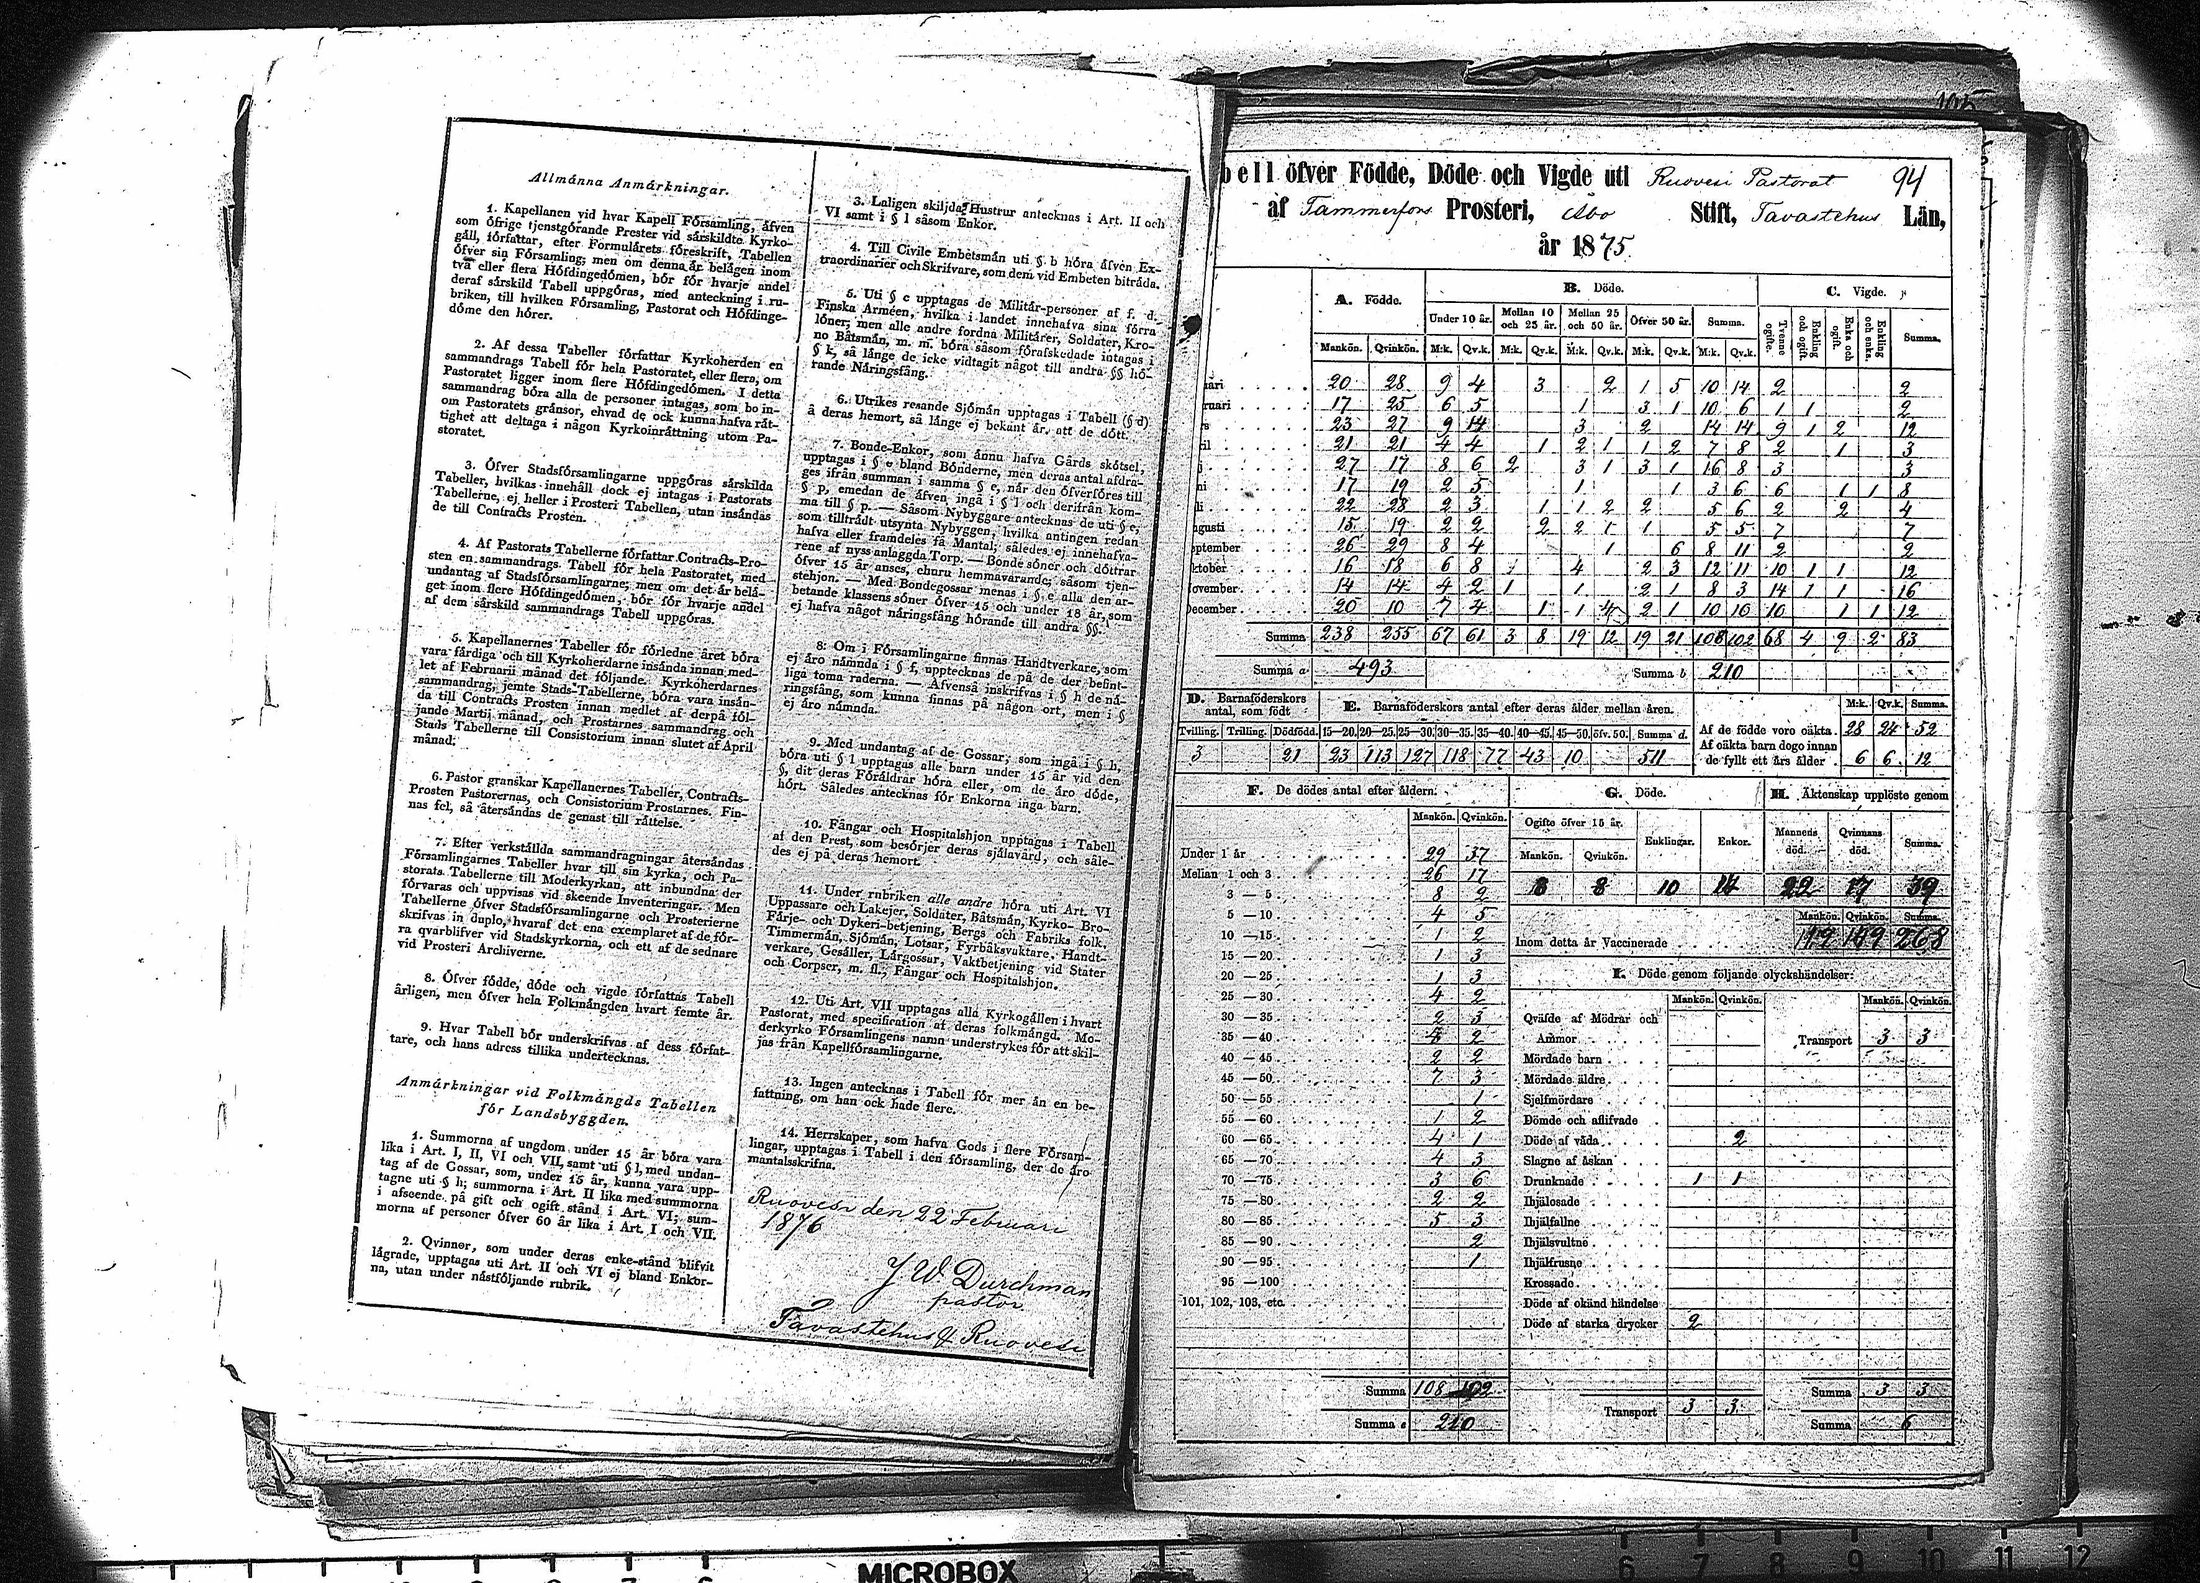 Allmänna Anmärkningar.
1. Kapellanen vid hvar Kapell Församling, äfven
som öfrige tjenstgörande Prester vid särskildte Kyrko-
gäll, författar, efter Formulärets föreskrift, Tabellen
öfver sin Församling; men om denna är belägen inom
två eller flera Höfdingedömen, bör för hvarje andel
deraf särskild Tabell uppgöras, med anteckning i ru-
briken, till hvilken Församling, Pastorat och Höfdinge-
döme den hörer.
2. Af dessa Tabeller författar Kyrkoherden en
sammandrags Tabell för hela Pastoratet, eller flera, om
Pastoratet ligger inom flere Höfdingedömen. I detta
sammandrag böra alla de personer intagas, som bo in-
om Pastoratets gränsor, ehvad de ock kunna hafva rät-
tighet att deltaga i någon Kyrkoinrättning utom Pa-
storatet.
3. Öfver Stadsförsamlingarne uppgöras särskilda
Tabeller, hvilkas innehåll dock ej intagas i Pastorats
Tabellerne, ej heller i Prosteri Tabellen, utan insändas
de till Contracts Prosten.
4. Af Pastorats Tabellerne författar Contracts-Pro-
sten en sammandrags Tabell för hela Pastoratet, med
undantag af Stadsförsamlingarne; men om det är belä-
get inom flere Höfdingedömen, bör för hvarje andel
af dem särskild sammandrags Tabell uppgöras.
5. Kapellanernes Tabeller för förledne året böra
vara färdiga och till Kyrkoherdarne insända innan med-
let af Februarii månad det följande. Kyrkoherdarnes
sammandrag, jemte Stads-Tabellerne, böra vara insän-
da till Contracts Prosten innan medlet af derpå föl-
jande Martii månad, och Prostarnes sammandrag och
Stads Tabellerne till Consistorium innan slutet af April
månad.
6. Pastor granskar Kapellanernes Tabeller, Contracts-
Prosten Pastorernas, och Consistorium Prostarnes. Fin-
nas fel, så återsändas de genast till rättelse.
7. Efter verkställda sammandragningar återsändas
Församlingarnes Tabeller hvar till sin kyrka, och Pa-
storats Tabellerne till Moderkyrkan, att inbundna der
förvaras och uppvisas vid skeende Inventeringar. Men
Tabellerne öfver Stadsförsamlingarne och Prosterierne
skrifvas in duplo, hvaraf det ena exemplaret af de för-
ra qvarblifver vid Stadskyrkorna, och ett af de sednare
vid Prosteri Archiverne.
8. Öfver födde, döde och vigde författas Tabell
årligen, men öfver hela Folkmängden hvart femte år.
9. Hvar Tabell bör underskrifvas af dess förfat-
tare, och hans adress tillika undertecknas.
Anmärkningar vid Folkmängds Tabellen
för Landsbyggden.
1. Summorna af ungdom under 15 år böra vara
lika i Art. I, II, VI och VII, samt uti § l, med undan-
tag af de Gossar, som, under 15 år, kunna vara upp-
tagne uti § h; summorna i Art. II lika med summorna
i afseende på gift och ogift stånd i Art. VI; sum-
morna af personer öfver 60 år lika i Art. I och VII.
2. Qvinnor, som under deras enke-stånd blifvit
lägrade, upptagas uti Art. II och VI ej bland Enkor-
na, utan under nästföljande rubrik.
3. Laligen skiljda Hustrur antecknas i Art. II och
VI samt i § l såsom Enkor.
4. Till Civile Embetsmän uti § b höra äfven Ex-
traordinarier och Skrifvare, som dem vid Embeten biträda.
5. Uti § c upptagas de Militär-personer af f. d.
Finska Arméen, hvilka i landet innehafva sina förra
löner; men alla andre fordna Militärer, Soldater, Kro-
no Båtsmän, m. m. böra såsom förafskedade intagas i
§ k, så länge de icke vidtagit något till andra §§ hö-
rande Näringsfång.
6. Utrikes resande Sjömän upptagas i Tabell (§ d)
å deras hemort, så länge ej bekant är, att de dött.
7. Bonde-Enkor, som ännu hafva Gårds skötsel,
upptagas i § e bland Bönderne, men deras antal afdra-
ges ifrån summan i samma § e, när den öfverföres till
§ p, emedan de äfven ingå i § l och derifrån kom-
ma till § p. — Såsom Nybyggare antecknas de uti § e,
som tillträdt utsynta Nybyggen, hvilka antingen redan
hafva eller framdeles få Mantal; således ej innehafva-
rene af nyss anlaggda Torp. — Bonde söner och döttrar
öfver 15 år anses, churu hemmavarande, såsom tjen-
stehjon. — Med Bondegossar menas i § e alla den ar-
betande klassens söner öfver 15 och under 18 år, som
ej hafva något näringsfång hörande till andra §§.
8. Om i Församlingarne finnas Handtverkare, som
ej äro nämnda i § f, upptecknas de på de der befint-
liga toma raderna. — Äfvenså inskrifvas i § h de nä-
ringsfång, som kunna finnas på någon ort, men i §
ej äro nämnda.
9. Med undantag af de Gossar, som ingå i § h,
böra uti § l upptagas alle barn under 15 år vid den
§, dit deras Föräldrar höra eller, om de äro döde,
hört. Således antecknas för Enkorna inga barn.
10. Fångar och Hospitalshjon upptagas i Tabell
af den Prest, som besörjer deras själavård, och såle-
des ej på deras hemort.
11. Under rubriken alle andre höra uti Art. VI
Uppassare och Lakejer, Soldater, Båtsmän, Kyrko- Bro-
Färje- och Dykeri-betjening, Bergs och Fabriks folk,
Timmermän, Sjömän, Lotsar, Fyrbåksvaktare, Handt-
verkare, Gesäller, Lärgossar, Vaktbetjening vid Stater
och Corpser, m. fl., Fångar och Hospitalshjon.
12. Uti Art. VII upptagas alla Kyrkogällen i hvart
Pastorat, med specification af deras folkmängd. Mo-
derkyrko Församlingens namn understrykes för att skil-
jas från Kapellförsamlingarne.
13. Ingen antecknas i Tabell för mer än en be-
fattning, om han ock hade flere.
14. Herrskaper, som hafva Gods i flere Försam-
lingar, upptagas i Tabell i den församling, der de äro
mantalsskrifna.
Ruovesi den 22 Februari
1876
J W Durchman
pastor
Tavastehus & Ruovesi
bell öfver Födde, Döde och Vigde uti Ruovesi Pastorat 94
af Tammerfors Prosteri, Åbo Stift, Tavastehus Län,
år 1875.
A. Födde. B. Döde. C. Vigde.
Under 10 år. Mellan 10 och 25 år. Mellan 25 och 50 år. Öfver 50 år. Summa. Tvenne ogifte. Enkling och ogift. Enka och ogift. Enkling och enka. Summa.
Mankön. Qvinkön. M:k. Qv.k. M:k. Qv.k. M:k. Qv.k. M:k. Qv.k. M:k. Qv.k.
uari 20 28 9 4 3 2 1 5 10 14 2 2
ruari 17 25 6 5 1 3 1 10 6 1 1 2
rs 23 27 9 14 3 2 14 14 9 1 2 12
ril 21 21 4 4 1 2 1 1 2 7 8 2 1 3
j 27 17 8 6 2 3 1 3 1 16 8 3 3
ni 17 19 2 5 1 1 3 6 6 1 1 8
li 22 28 2 3 1 1 2 2 5 6 2 2 4
ugusti 15 19 2 2 2 2 1 1 5 5 7 7
eptember 26 29 8 4 1 6 8 11 2 2
ktober 16 18 6 8 4 2 3 12 11 10 1 1 12
ovember 14 14 4 2 1 1 2 1 8 3 14 1 1 16
December 20 10 7 4 1 1 4 2 1 10 10 10 1 1 12
Summa 238 255 67 61 3 8 19 12 19 21 108 102 68 4 9 2 83
Summa a 493 Summa b 210
D. Barnaföderskors antal, som födt
Tvilling. Trilling. Dödfödd.
3 21
E. Barnaföderskors antal efter deras ålder mellan åren.
15—20. 20—25. 25—30. 30—35. 35—40. 40—45. 45—50. öfv. 50. Summa d.
23 113 127 118 77 43 10 511
M:k. Qv.k. Summa.
Af de födde voro oäkta 28 24 52
Af oäkta barn dogo innan
de fyllt ett års ålder 6 6 12
F. De dödes antal efter åldern.
Mankön. Qvinkön.
Under 1 år 29 37
Mellan 1 och 3 26 17
3 — 5 8 2
5 —10 4 5
10 —15 1 2
15 —20 1 3
20 —25 1 3
25 —30 4 2
30 —35 2 3
35 —40 4 2
40 —45 2 2
45 —50 7 3
50 —55 1
55 —60 1 2
60 —65 4 1
65 —70 4 3
70 —75 3 6
75 —80 2 2
80 —85 5 3
85 —90 2
90 —95 1
95 —100
101, 102, 103, etc.
Summa 108 102
Summa e 210
G. Döde.
Ogifte öfver 15 år. Enklingar. Enkor.
Mankön. Qvinkön.
8 8 10 14
H. Äktenskap upplöste genom
Mannens död. Qvinnans död. Summa.
22 17 39
Mankön. Qvinkön. Summa.
Inom detta år Vaccinerade 268
I. Döde genom följande olyckshändelser:
Mankön. Qvinkön. Mankön. Qvinkön.
Qväfde af Mödrar och
Ammor Transport 3 3
Mördade barn
Mördade äldre
Sjelfmördare
Dömde och aflifvade
Döde af våda 2
Slagne af åskan
Drunknade 1 1
Ihjälosade
Ihjälfallne
Ihjälsvultne
Ihjälfrusne
Krossade
Döde af okänd händelse
Döde af starka drycker 2
Transport 3 3
Summa 3 3
Summa 6
MICROBOX
6 7 8 9 10 11 12